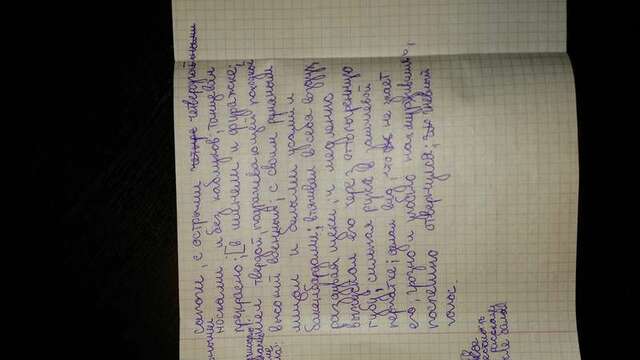 сапоги, с острыми четыре четвероугольными
носками и без каблуков; танцевал
прекрасно; [в шинели и фуражке;
шел твердой, подрагивающей походкой
высокий военный; с своим румяным
лицом и белыми усами и
бакенбардами; втягивал в себя воздух,
раздувая щёки, и медленно
выпускал его через оттопыренную
губу; сильная рука в замшевой
перчатке; делая вид, что он не знает
его, грозно и злобно нахмурившись,
поспешно отвернулся; гневный
голос.
рассказу
после бала